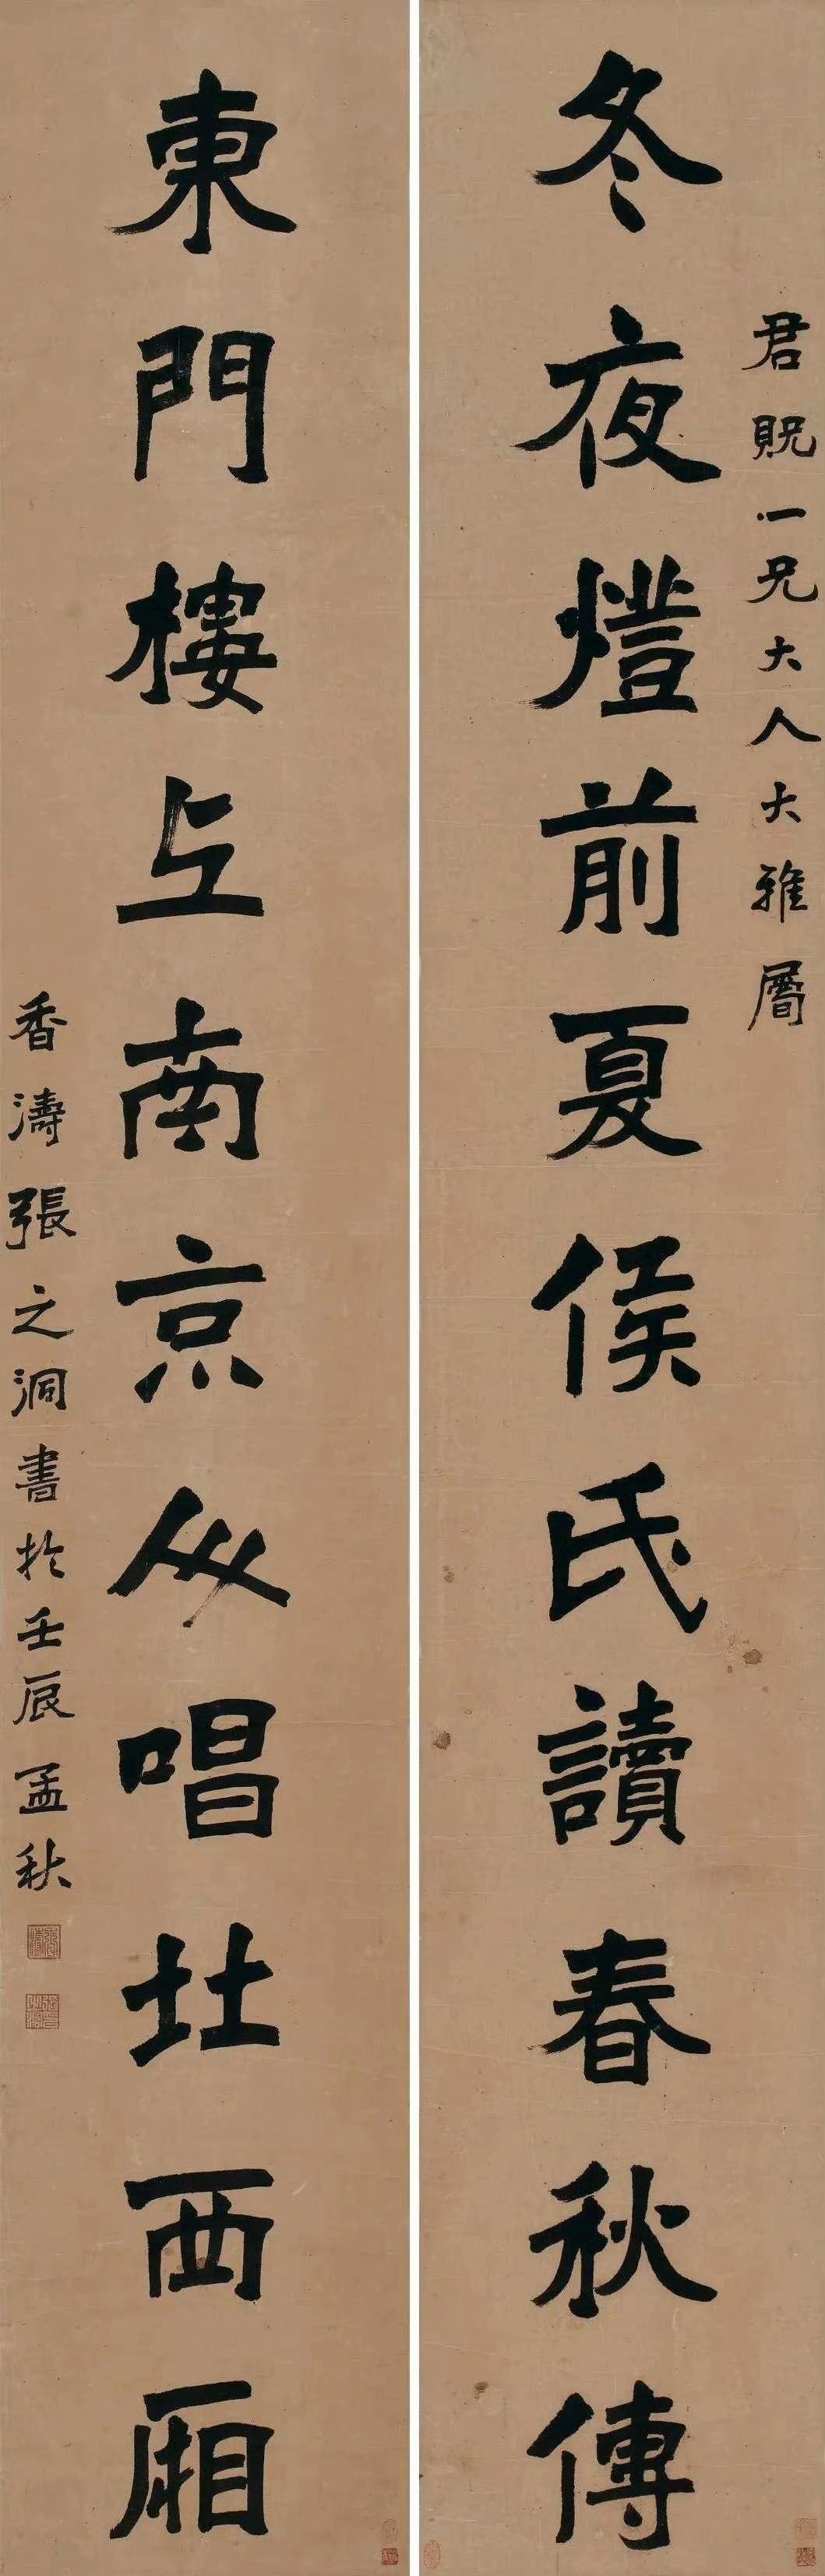 君貺一兄大人大雅屬
冬夜燈前夏侯氏讀春秋傳
東門樓上南京人唱北西廂
香濤張之洞書於壬辰孟秋